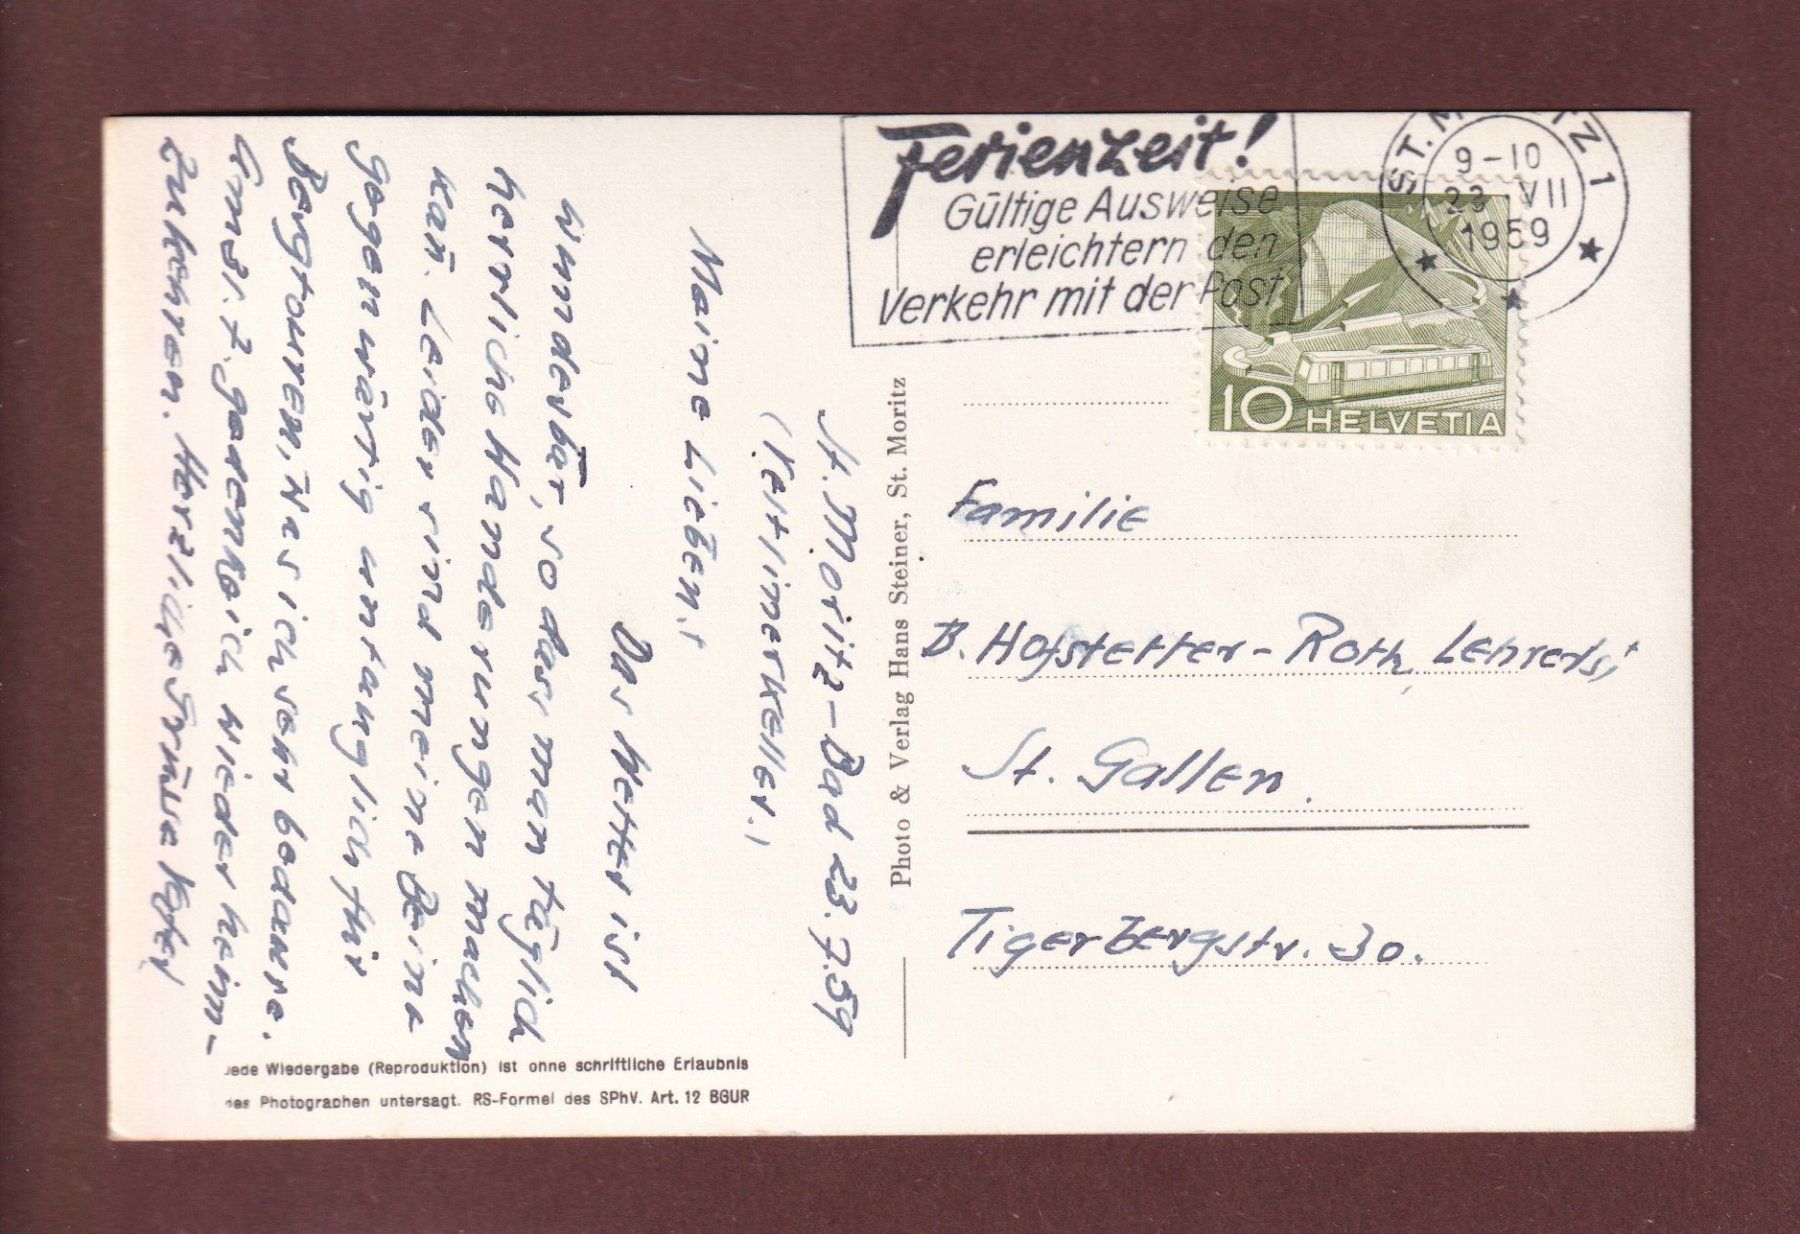 Ferienzeit!
Gültige Ausweise
erleichtern den
Verkehr mit der Post
ST. M TZ 1
9-10
23 VII
1959
10 HELVETIA
Familie
B. Hofstetter-Roth, Lehrers,
St. Gallen.
Tigerbergstr. 30.
Photo & Verlag Hans Steiner, St. Moritz
St. Moritz-Bad 23.7.59
(Veltlinerkeller.)
Meine Lieben,
Das Wetter ist
wunderbar, so dass man täglich
herrliche Wanderungen machen
kan̄. Leider sind meine Beine
gegenwärtig untauglich für
Bergtouren, was ich sehr bedaure.
Am 31.7. gedenke ich wieder heim-
zukehren. Herzliche Grüsse
Jede Wiedergabe (Reproduktion) ist ohne schriftliche Erlaubnis
des Photographen untersagt. RS-Formel des SPhV. Art. 12 BGUR